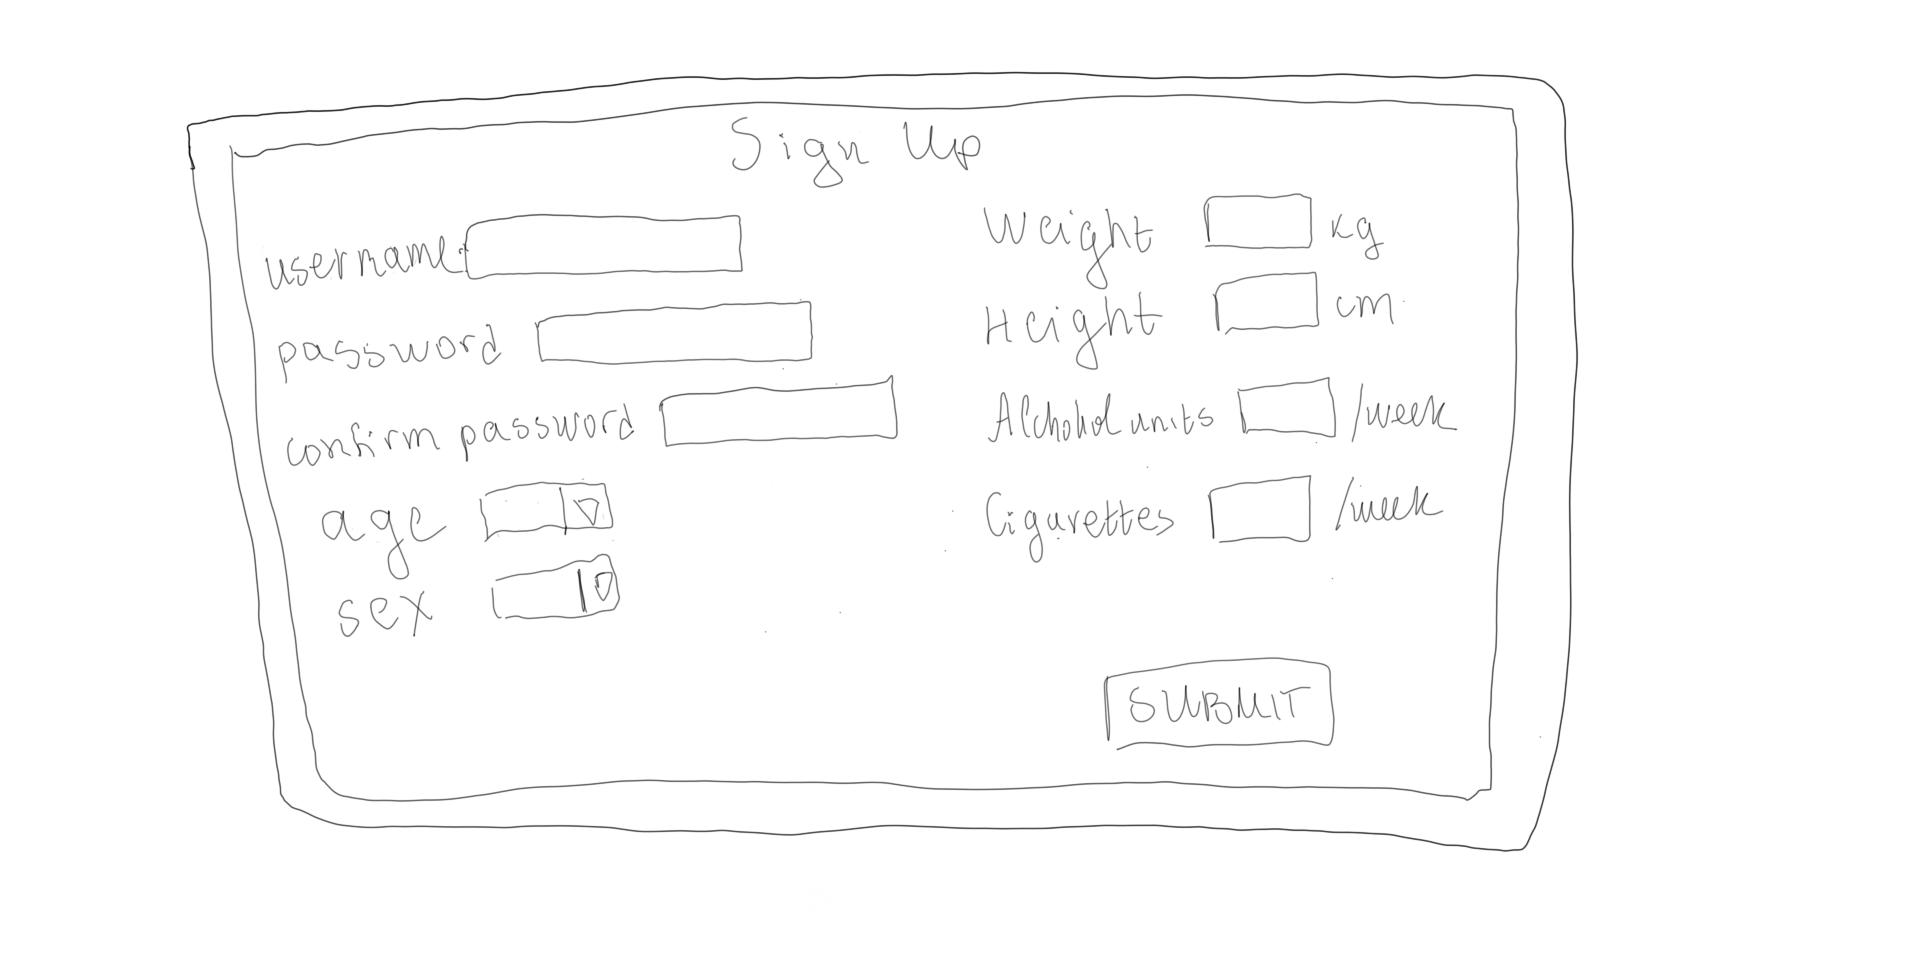 Sign Up
username:
password
confirm password
age
sex
Weight kg
Height cm
Alchohol units /week
Cigarettes /week
SUBMIT